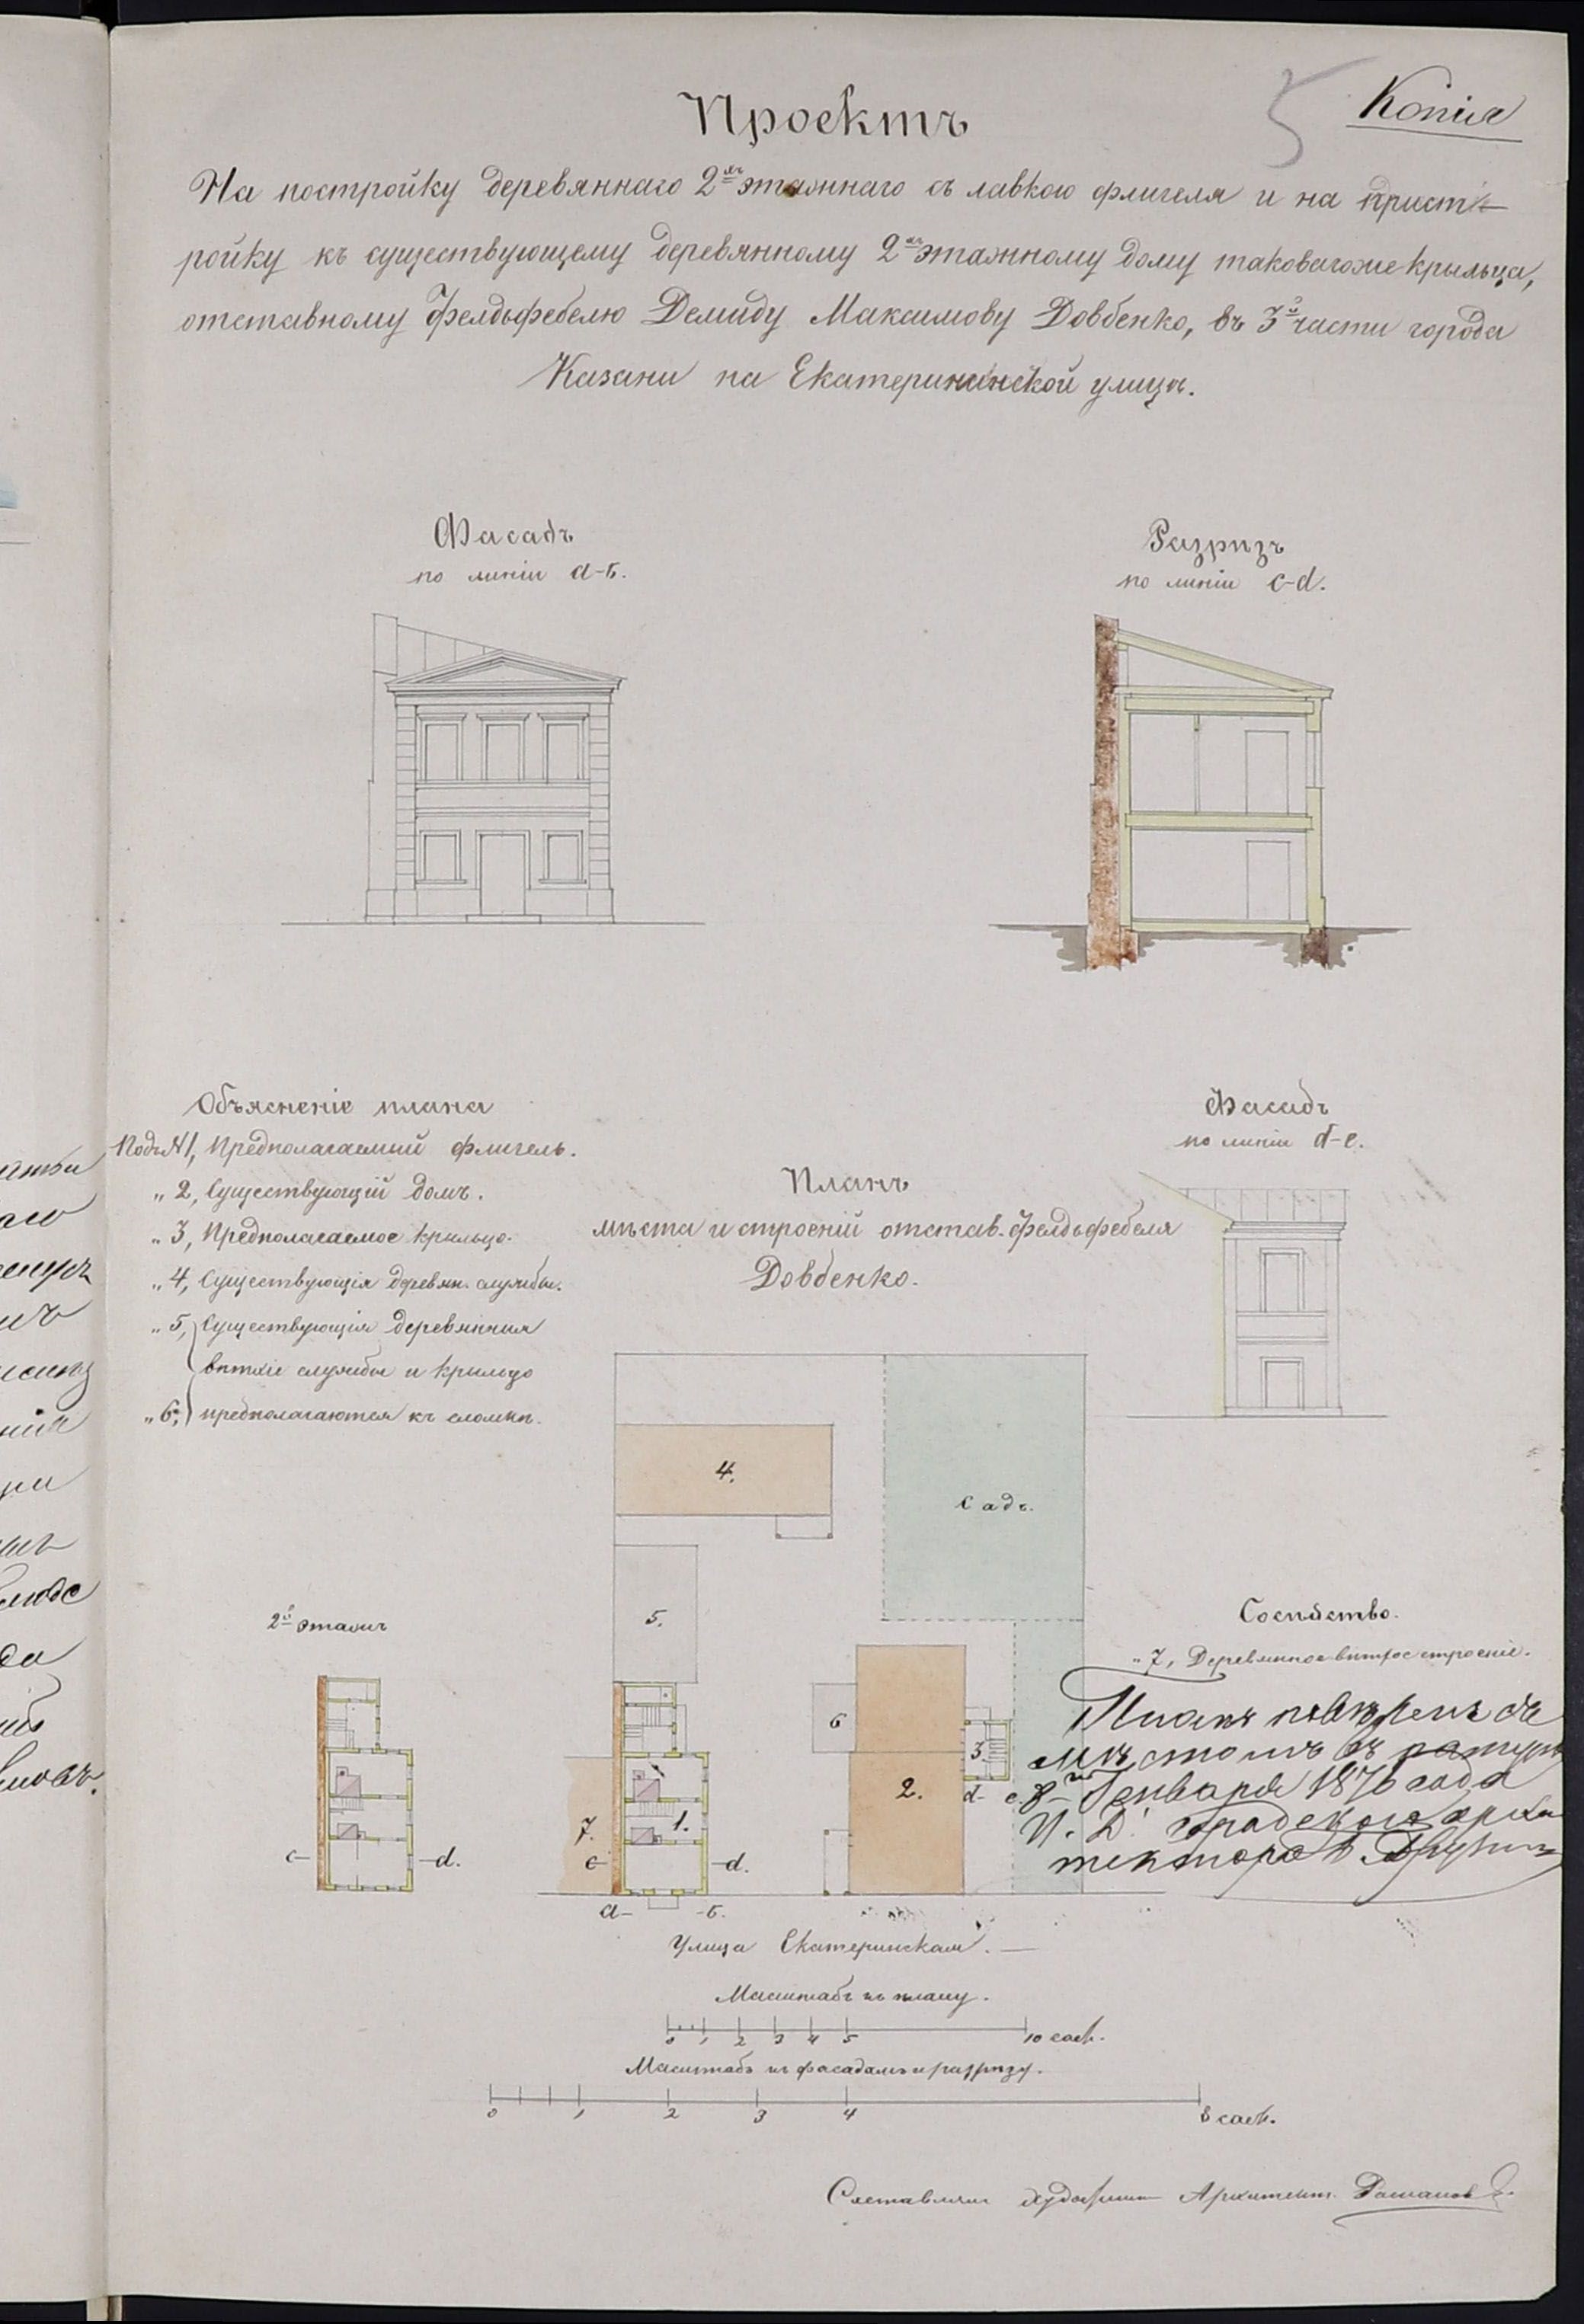 Копія
Проектъ
На постройку деревяннаго 2хъ этажнаго съ лавкою флигеля и на прист
ройку къ существующему деревянному 2хъ этажному дому таковагоже крыльца,
отставному Фелдьфебелю Демиду Максимову Довбенко, въ 3й части города
Казани на Екатерининской улицѣ.
Фасадъ
по линіи а-б.
Разрѣзъ
по линіи c-d.
Объясненіе плана
Подъ №1, Предполагаемый флигель.
„ 2, Существующій домъ.
„ 3, Предполагаемое крыльцо.
„ 4, Существующія деревян. службы.
„ 5, Существующія деревянныя
вѣтхіе службы и крыльцо
„ 6, предполагаются къ сломкѣ.
Фасадъ
по линіи d-e.
Планъ
мѣста и строеній отстав. Фелдьфебеля
Довбенко.
4.
Садъ.
5.
6
2й этажъ
Сосѣдство.
„ 7, Деревянное вѣтхое строеніе.
Планъ повѣренъ съ
мѣстомъ въ натурѣ
8го Января 1876 года
И. Д. Градского архи
тектора
3.
2.
d- e.
7.
1.
c- -d.
c- -d.
а- -б.
Улица Екатеринская.
Масштабъ къ плану.
0 1 2 3 4 5 10 саж.
Масштабъ къ фасадамъ и разрѣзу.
0 1 2 3 4 8 саж.
Составлялъ художникъ Архитект. Романовъ